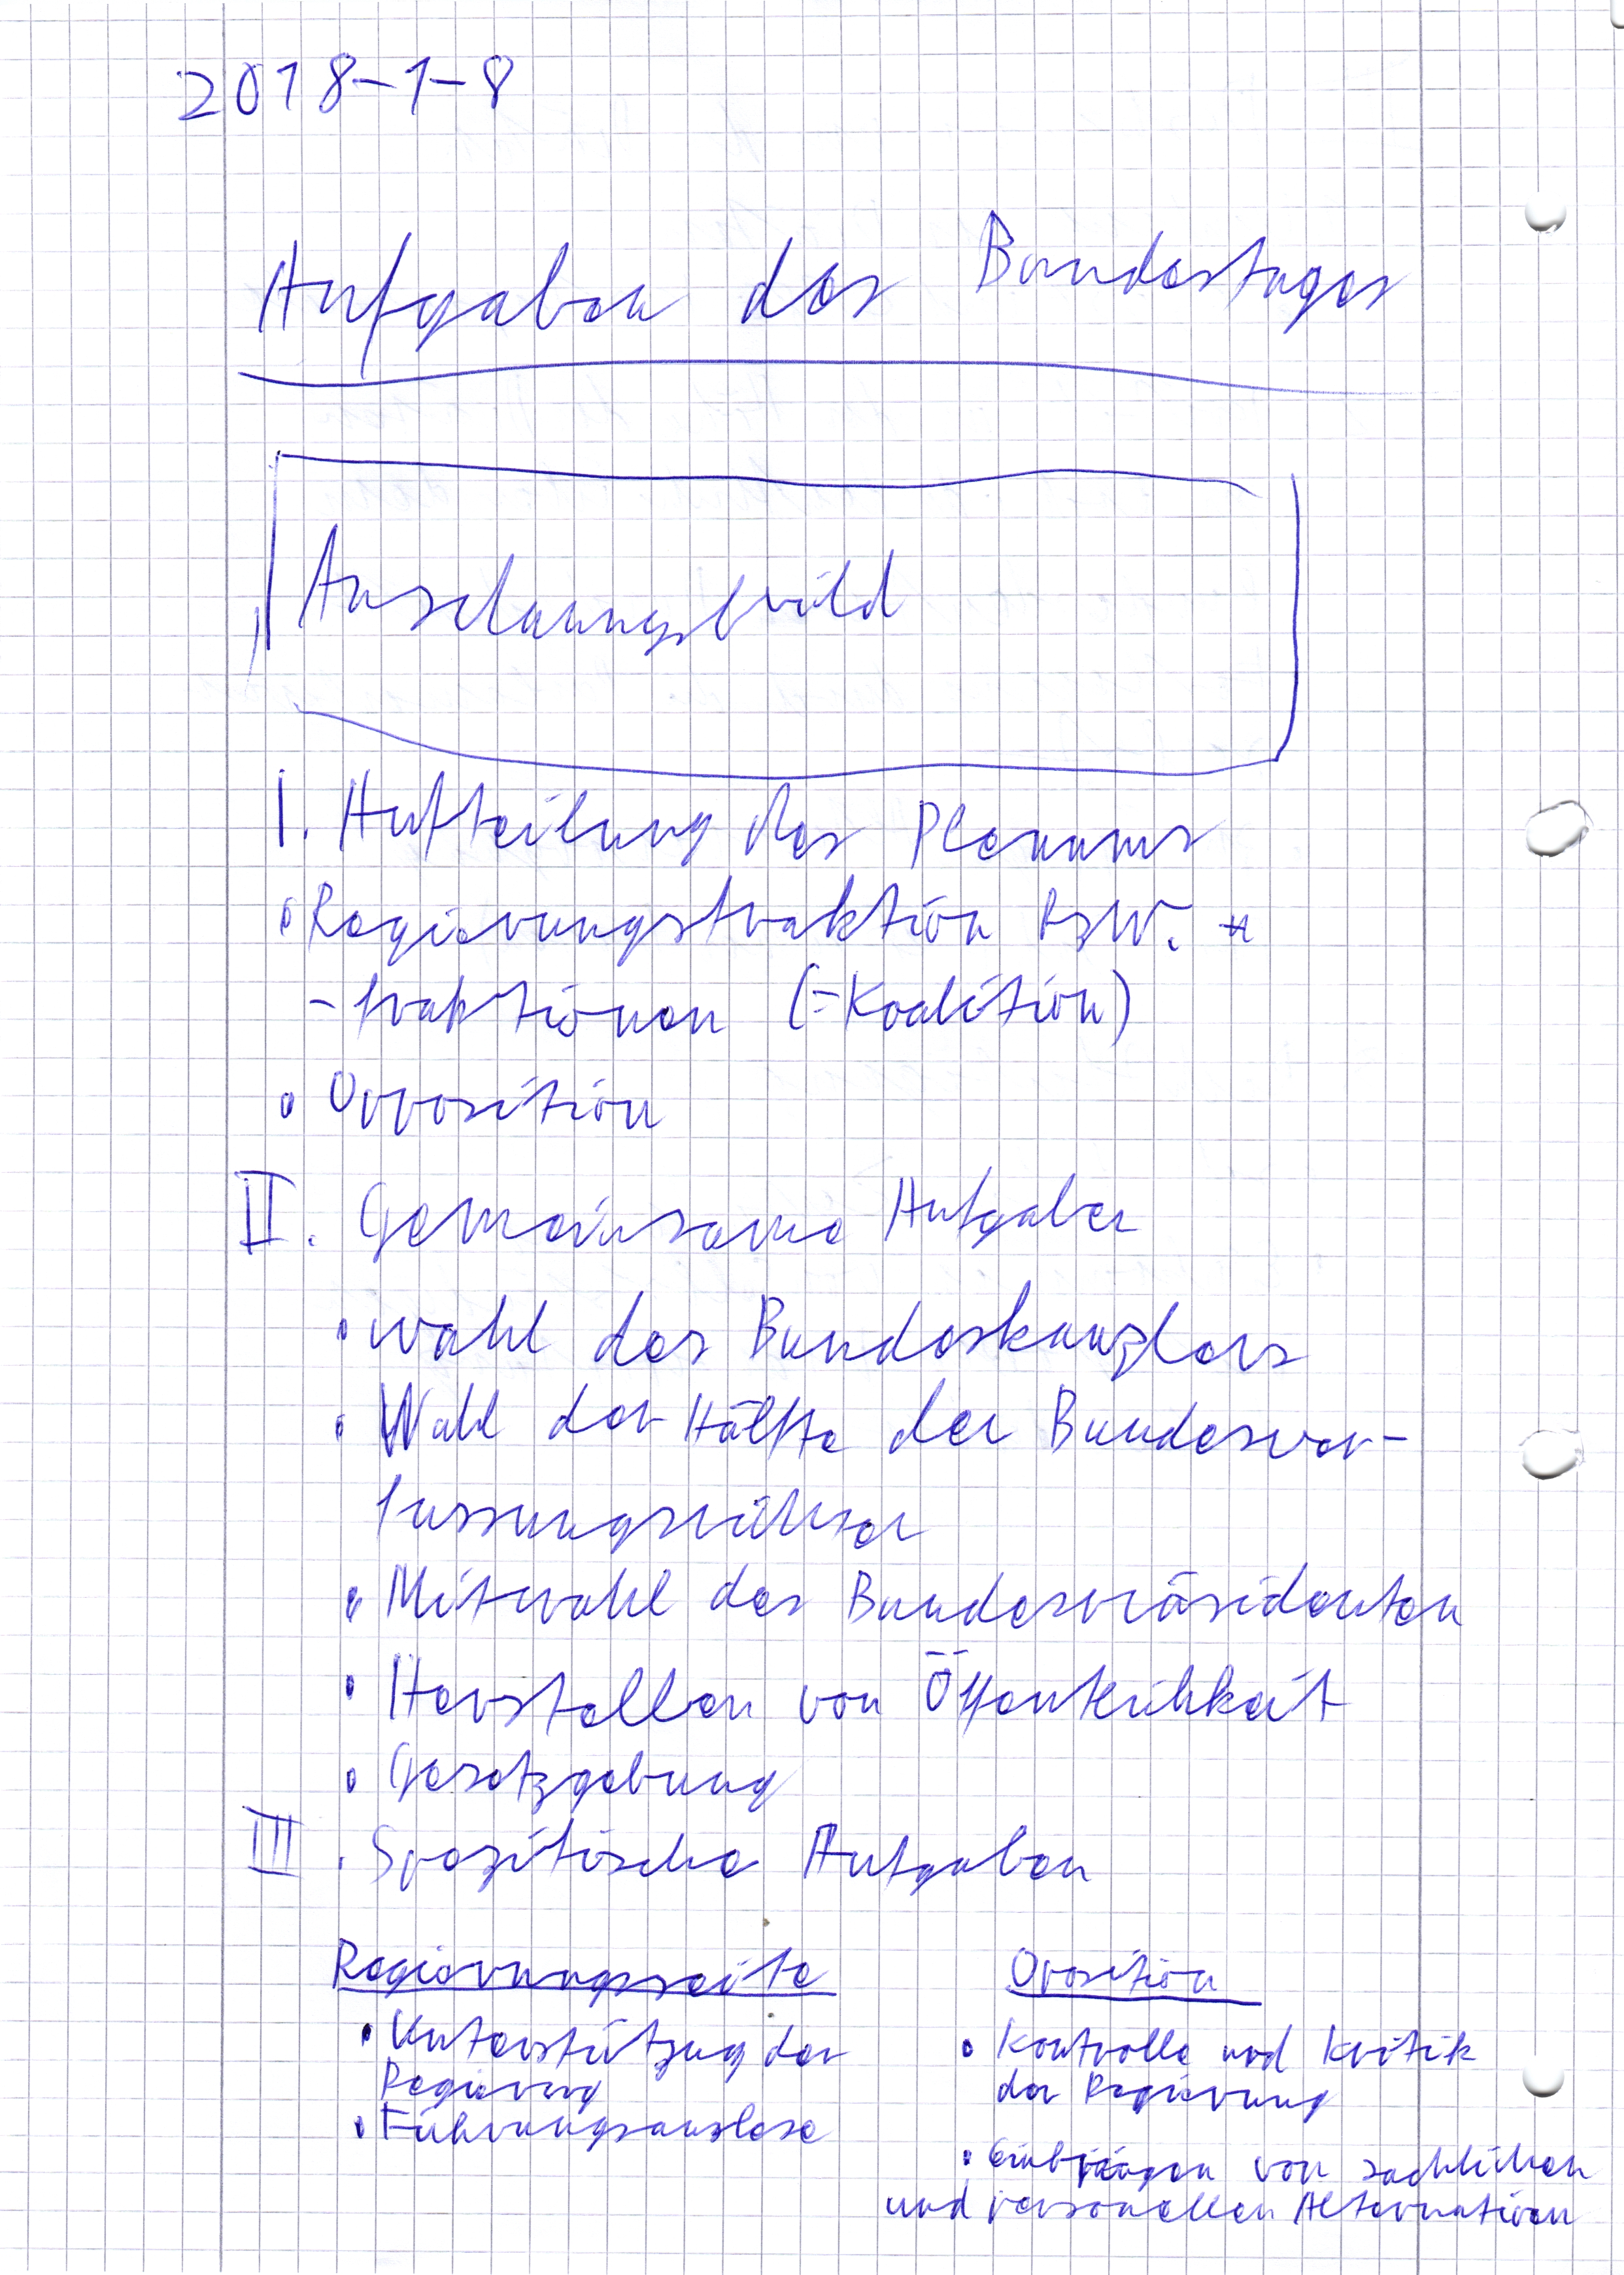 2018-1-8
Aufgaben des Bundestages
Anschauungsbild
I. Aufteilung des Plenums
• Regierungsfraktion bzw.
-fraktionen (=Koalition)
• Opposition
II. Gemeinsame Aufgaben
• Wahl des Bundeskanzlers
• Wahl der Hälfte der Bundesver-
fassungsrichter
• Mitwahl des Bundespräsidenten
• Herstellen von Öffentlichkeit
• Gesetzgebung
III. Spezifische Aufgaben
Regierungsseite
• Unterstützung der
Regierung
• Führungsauslese
Opposition
• Kontrolle und Kritik
der Regierung
• Einbringen von sachlichen
und personellen Alternativen